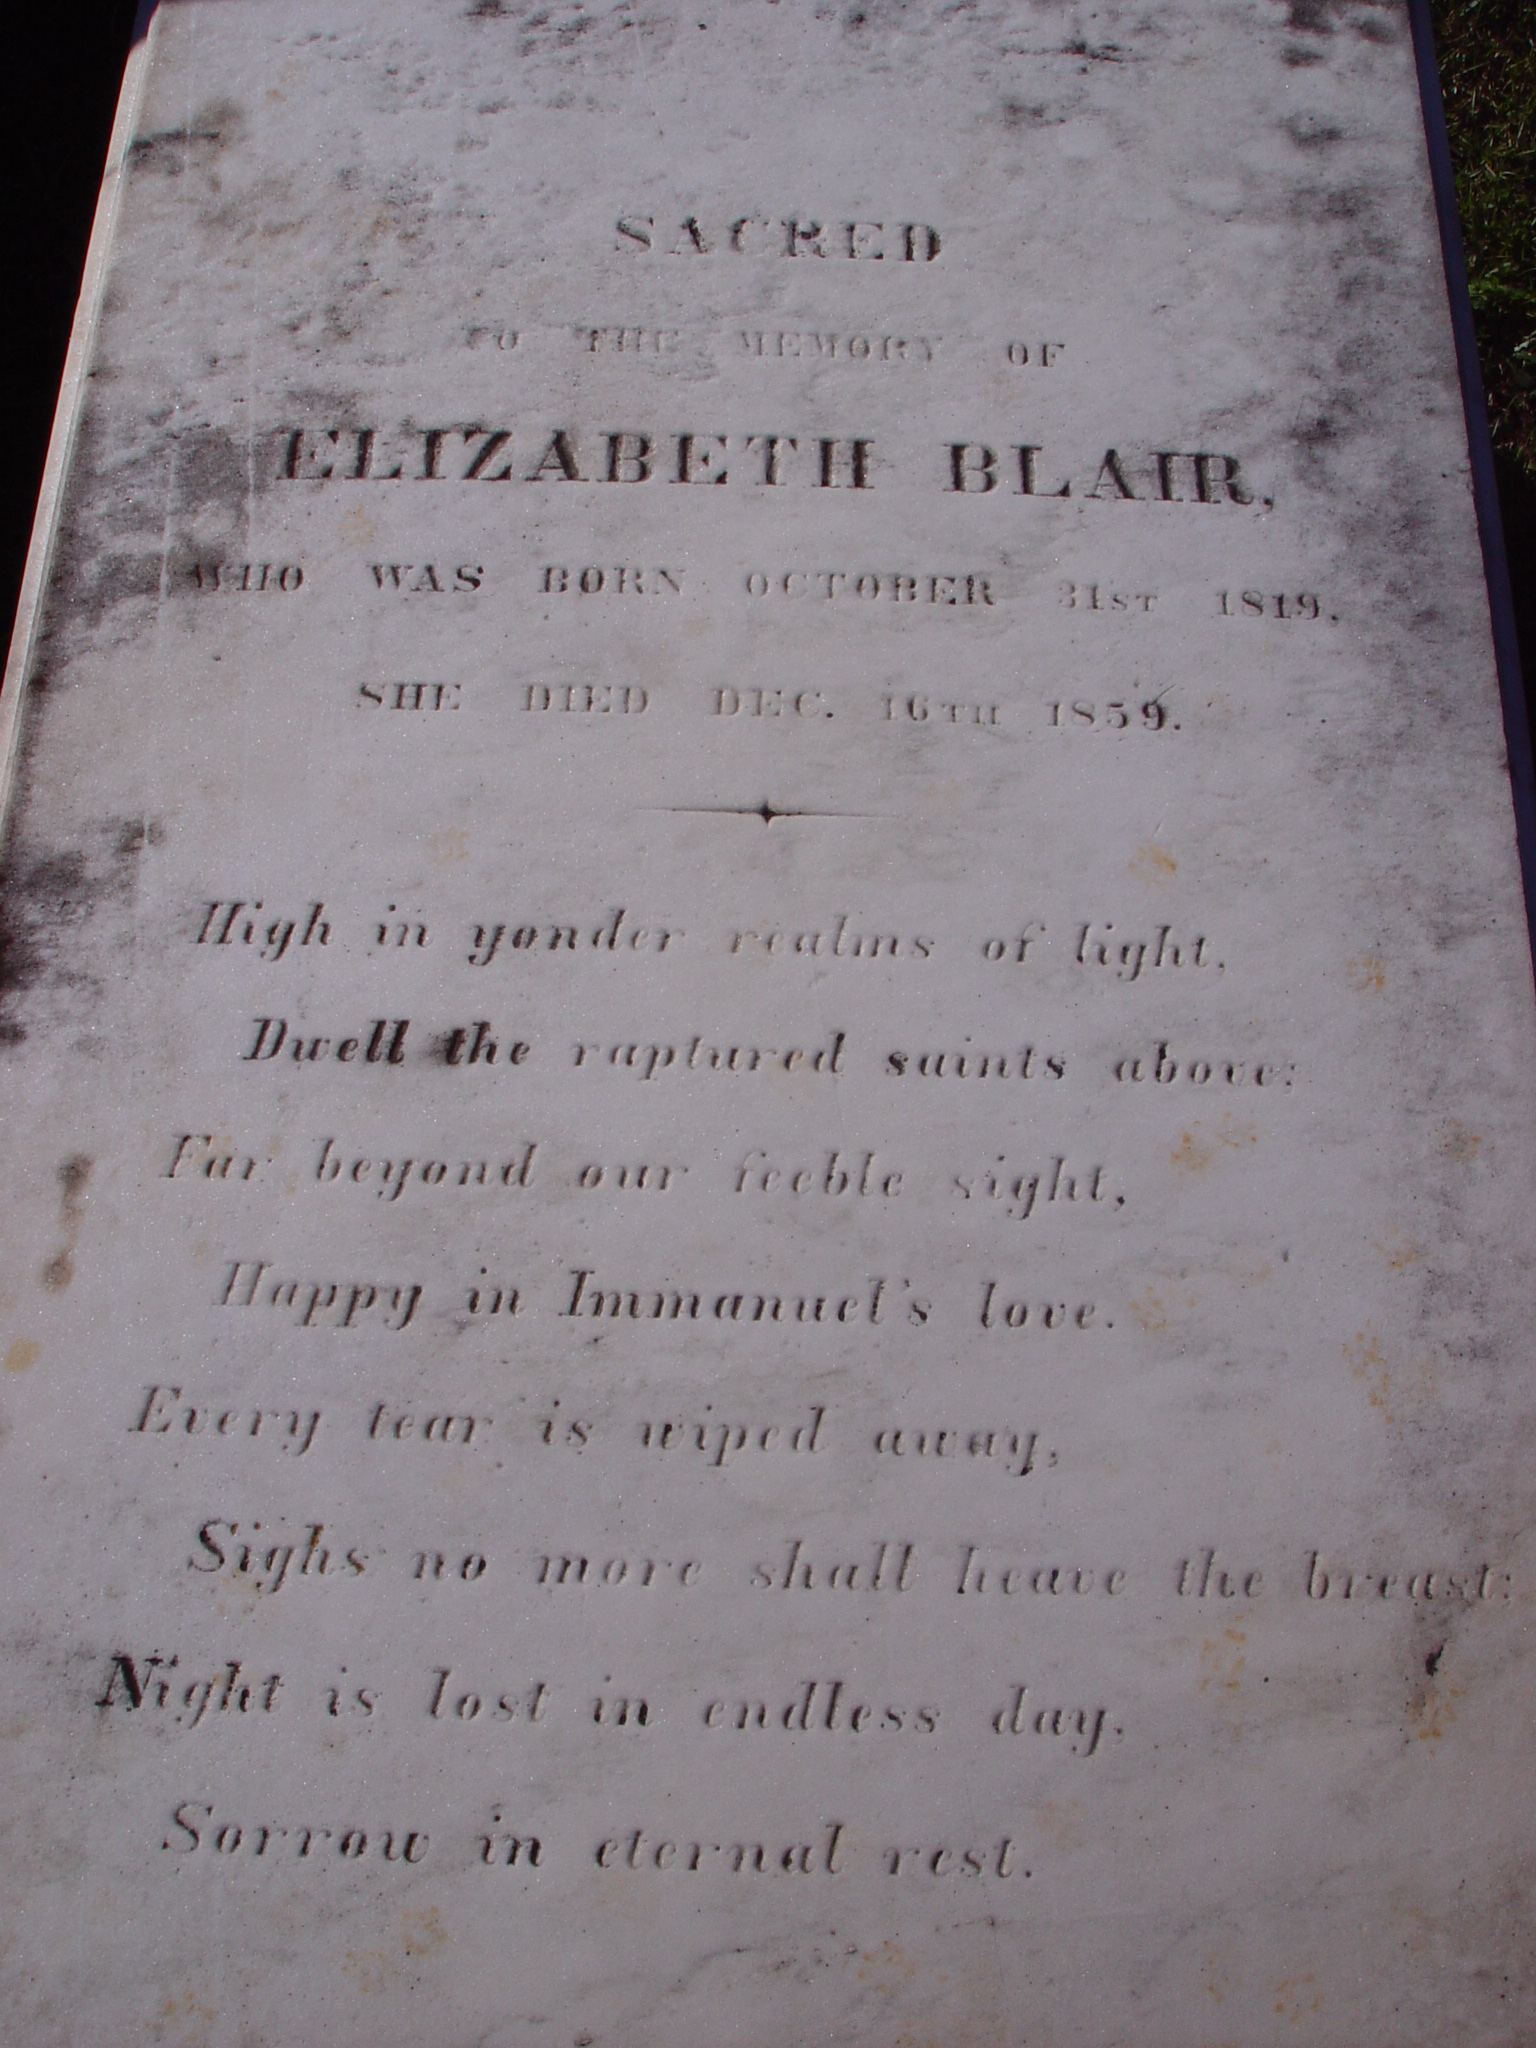 SACRED
TO THE MEMORY OF
ELIZABETH BLAIR,
WHO WAS BORN OCTOBER 31ST 1819.
SHE DIED DEC. 16TH 1859.
High in yonder realms of light,
Dwell the raptured saints above;
Far beyond our feeble sight,
Happy in Immanuel's love.
Every tear is wiped away,
Sighs no more shall heave the breast;
Night is lost in endless day,
Sorrow in eternal rest.